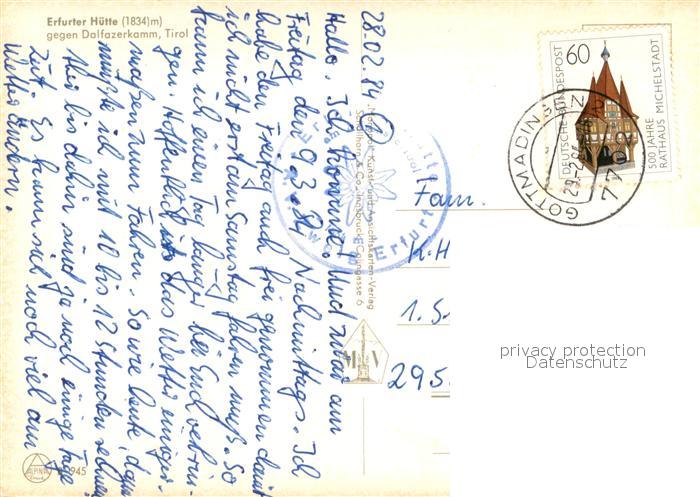 Erfurter Hütte (1834)m)
gegen Dalfazerkamm, Tirol
28.02.84
Hallo. Ich komme. Und zwar am
Freitag den 9.3.84 Nachmittags. Ich
habe den Freitag auch frei genommen damit
ich nicht erst am Samstag fahren muß. So
kann ich einen Tag länger bei Euch verbrin-
gen. Hoffentlich ist das Wetter einiger-
maßen zum Fahren. So wie heute, dann
müßte ich mit 10 bis 12 Stunden rechnen
Aber bis dahin sind ja noch einige Tage
Zeit. Es kann sich noch viel am
Wetter ändern.
Kunst- und Ansichtskarten-Verlag
& Co., Innsbruck,
Erfurter
DEUTSCHE BUNDESPOST
60
500 JAHRE
RATHAUS MICHELSTADT
GOTTMADINGEN
Fam.
K.H
1. S
295
privacy protection
Datenschutz
ALPINA
945